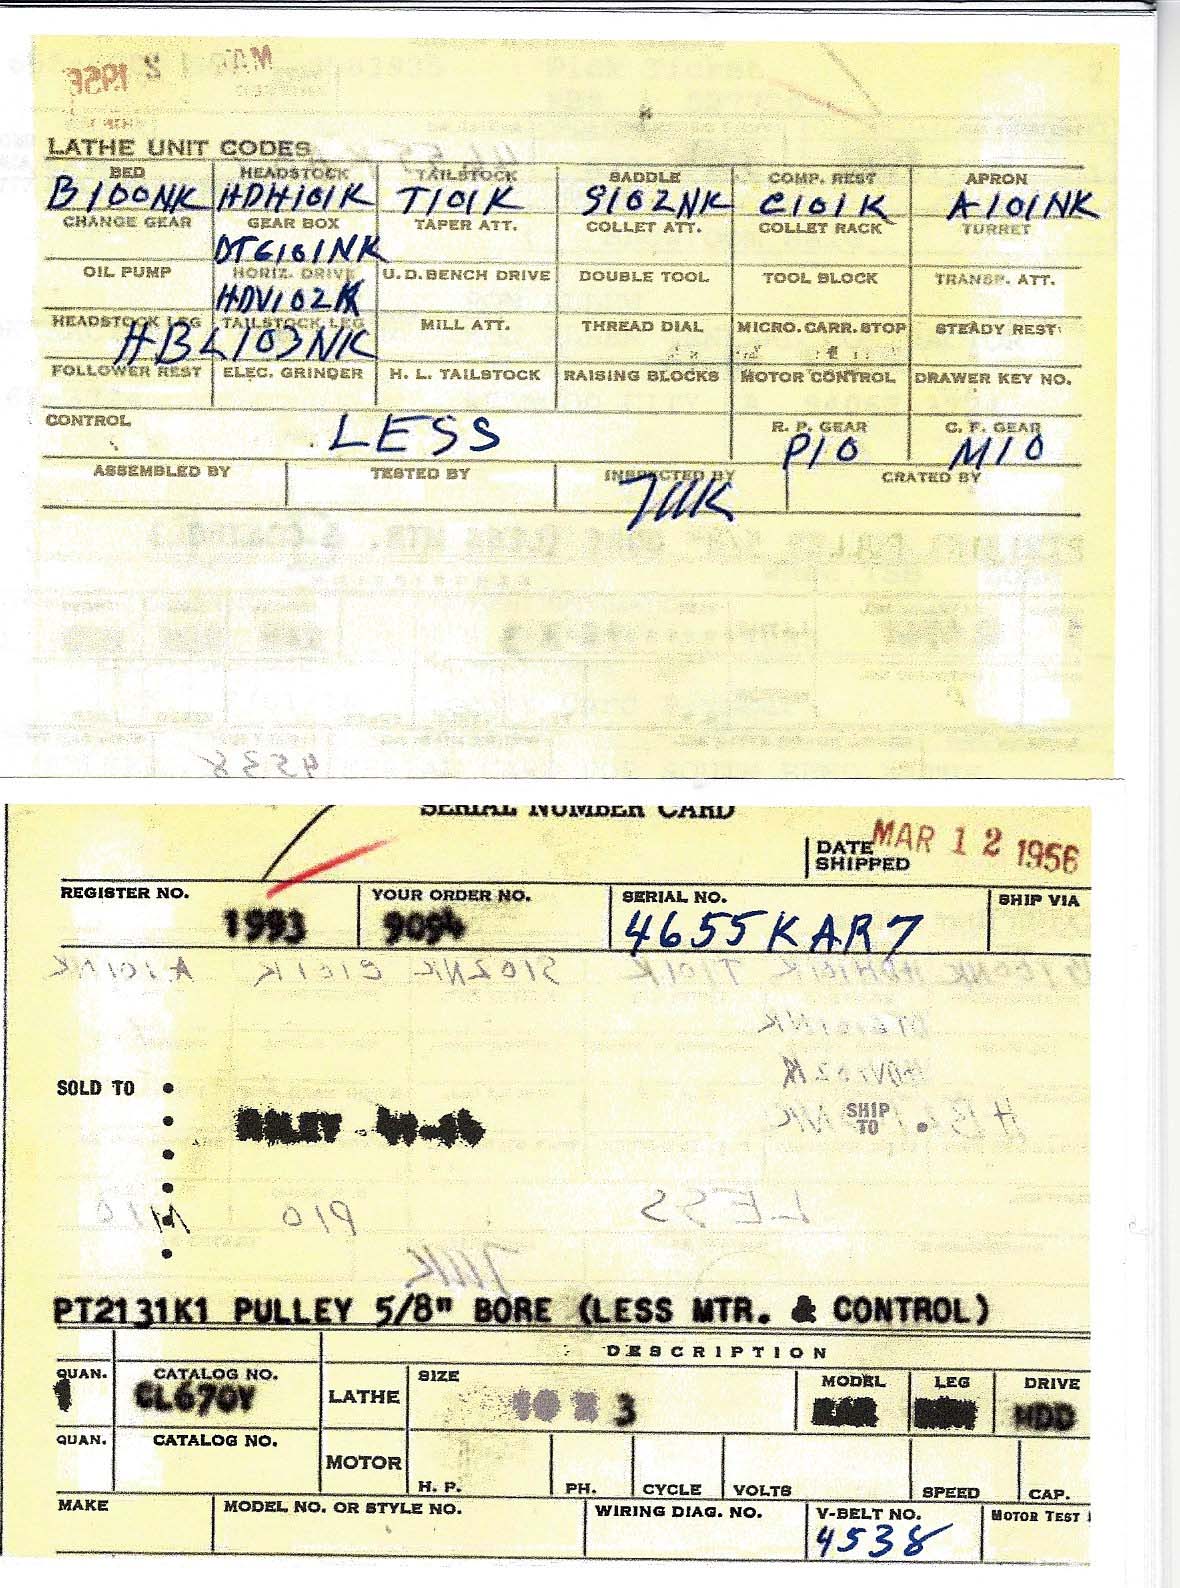 LATHE UNIT CODES
BED HEADSTOCK TAILSTOCK SADDLE COMP. REST APRON
B100NK HDH101K T101K S102NK C101K A101NK
CHANGE GEAR GEAR BOX TAPER ATT. COLLET ATT. COLLET RACK TURRET
DT6101NK
OIL PUMP HORIZ. DRIVE U.D. BENCH DRIVE DOUBLE TOOL TOOL BLOCK TRANSP. ATT.
HDV102K
HEADSTOCK LEG TAILSTOCK LEG MILL ATT. THREAD DIAL MICRO. CARR. STOP STEADY REST
HBL103NK
FOLLOWER REST ELEC. GRINDER H. L. TAILSTOCK RAISING BLOCKS MOTOR CONTROL DRAWER KEY NO.
CONTROL LESS R. P. GEAR C. F. GEAR
P10 M10
ASSEMBLED BY TESTED BY INSPECTED BY CRATED BY
SERIAL NUMBER CARD
DATE SHIPPED MAR 12 1956
REGISTER NO. YOUR ORDER NO. SERIAL NO. SHIP VIA
1993 9094 4655KAR7
SOLD TO
SHIP TO
PT2131K1 PULLEY 5/8" BORE (LESS MTR. & CONTROL)
DESCRIPTION
QUAN. CATALOG NO. LATHE SIZE MODEL LEG DRIVE
1 CL670Y 10 X 3 HDD
QUAN. CATALOG NO. MOTOR H. P. PH. CYCLE VOLTS SPEED CAP.
MAKE MODEL NO. OR STYLE NO. WIRING DIAG. NO. V-BELT NO. MOTOR TEST
4538